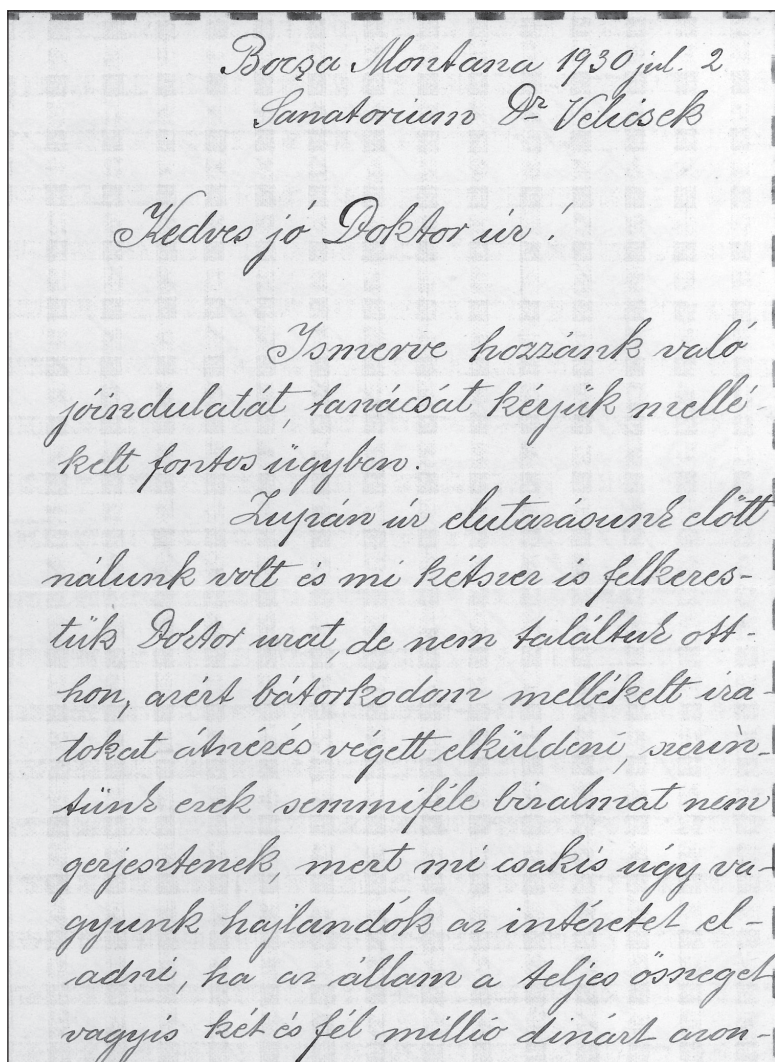 Bocşa Montana 1930 jul. 2
Sanatorium Dr Velicsek
Kedves jó Doktor úr!
Ismerve hozzánk való
jóindulatát, tanácsát kérjük mellé-
kelt fontos ügyben.
Zupán úr elutazásunk előtt
nálunk volt és mi kétszer is felkeres-
tük Doktor urat, de nem találtuk ott-
hon, azért bátorkodom mellékelt ira-
tokat átnézés végett elküldeni, szerin-
tünk ezek semmiféle bizalmat nem
gerjesztenek, mert mi csakis úgy va-
gyunk hajlandók az intézetet el-
adni, ha az állam a teljes ösneget
vagyis két és fél millió dinárt azon-